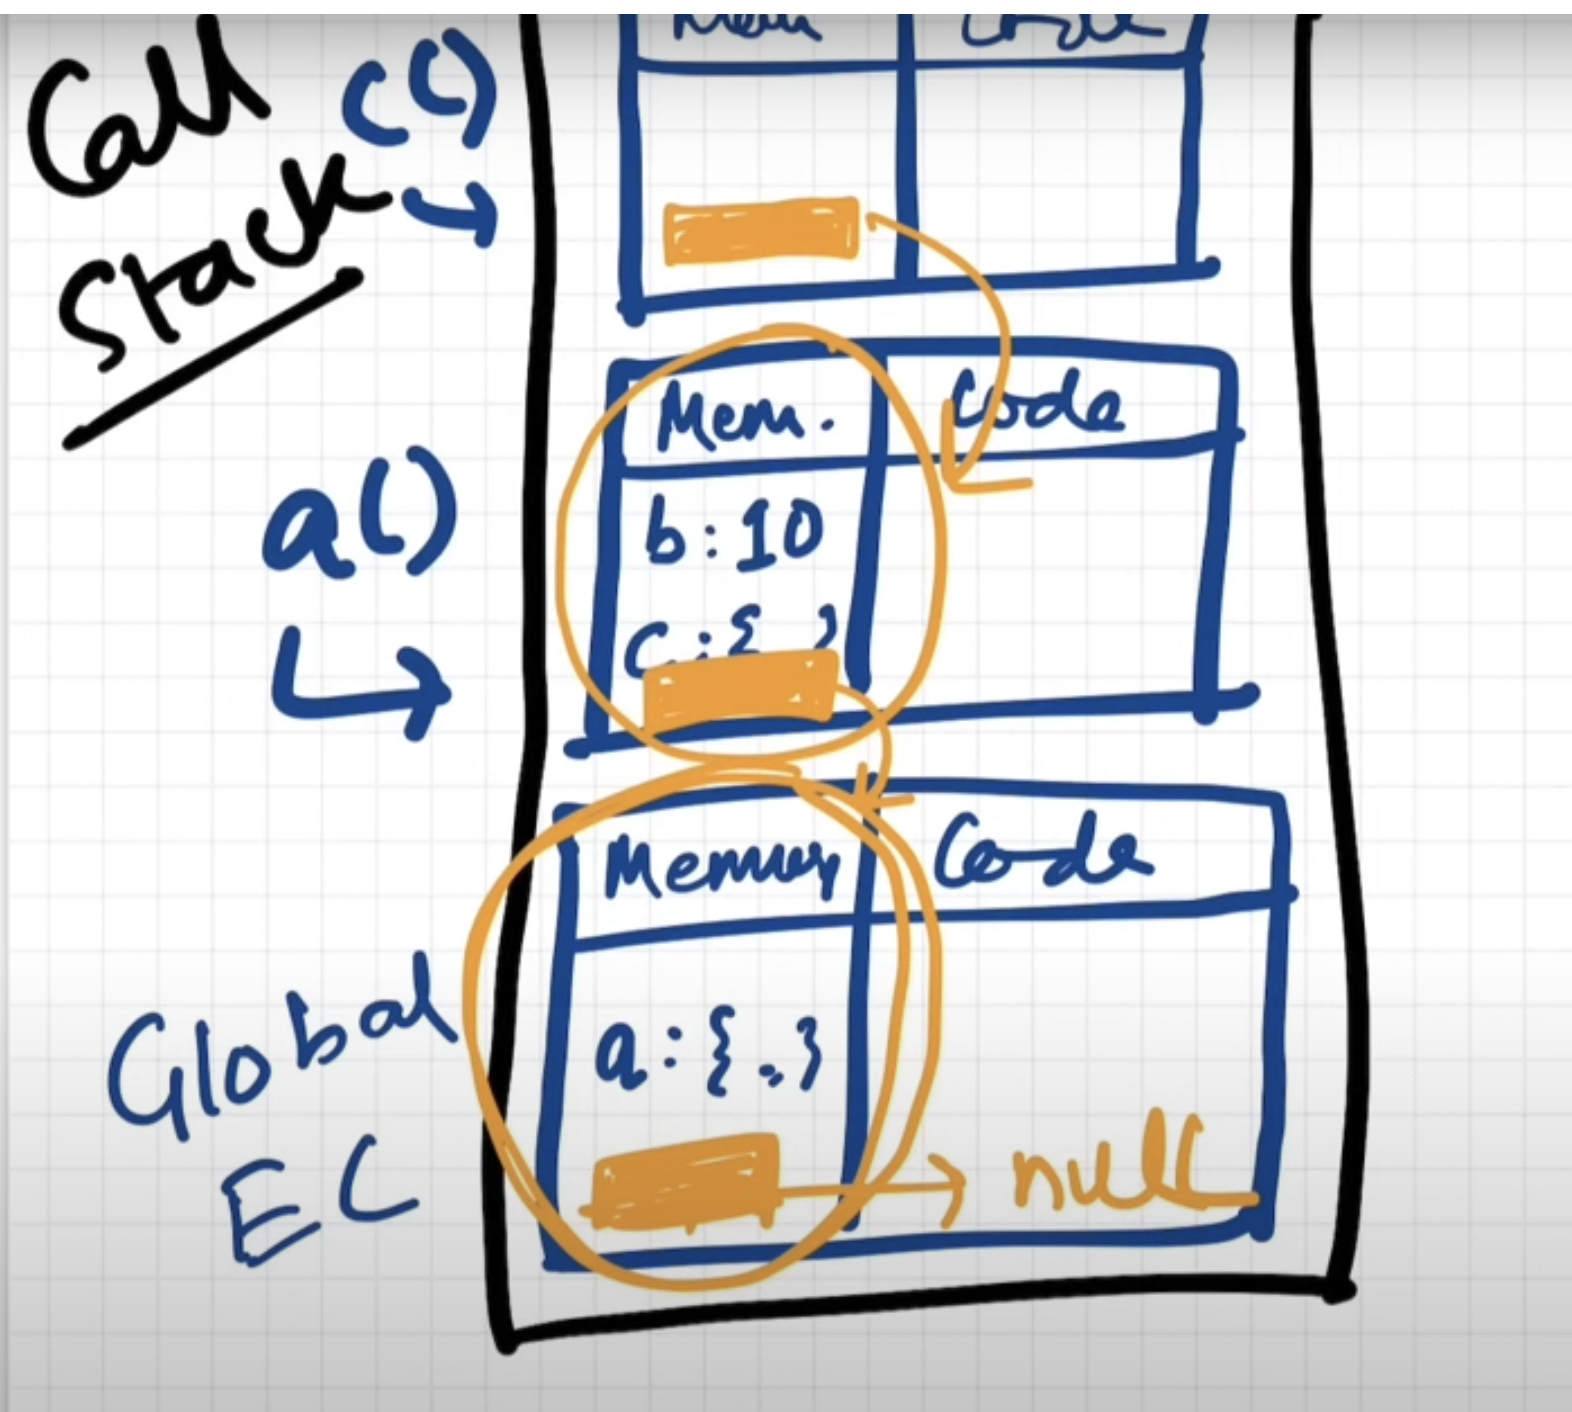 Call
Stack
c()
Mem Code
a()
Mem. Code
b:10
c:{ }
Global
EC
Memory Code
a:{.,}
null